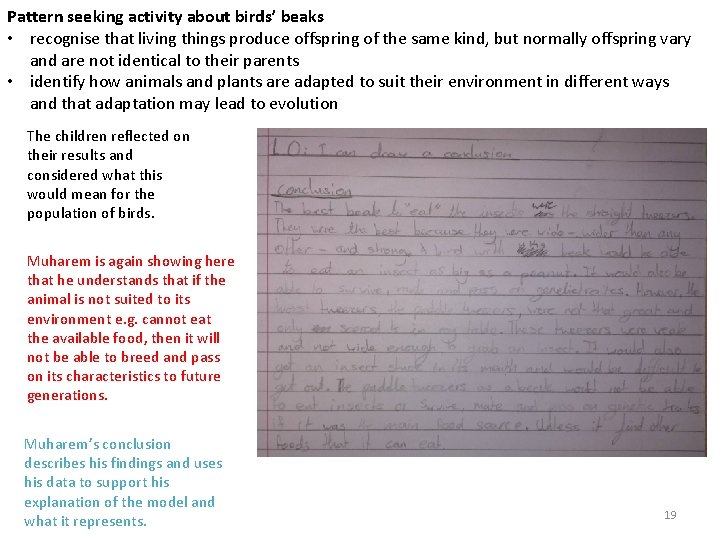 Pattern seeking activity about birds’ beaks
• recognise that living things produce offspring of the same kind, but normally offspring vary
and are not identical to their parents
• identify how animals and plants are adapted to suit their environment in different ways
and that adaptation may lead to evolution
The children reflected on
their results and
considered what this
would mean for the
population of birds.
Muharem is again showing here
that he understands that if the
animal is not suited to its
environment e.g. cannot eat
the available food, then it will
not be able to breed and pass
on its characteristics to future
generations.
Muharem’s conclusion
describes his findings and uses
his data to support his
explanation of the model and
what it represents.
L.O: I can draw a conclusion
Conclusion
The best beak to "eat" the insects was the straight tweezers.
They were the best because they were wide - wider than any
other - and strong. A bird with this beak would be able
to eat an insect as big as a peanut. It would also be
able to survive, mate and pass on genetic traites. However, the
worst tweezers, the paddle tweezers, were not that great and
only scored in my table. These tweezers were weak
and not wide enough to grab an insect. It would also
get an insect stuck in its mouth and would be difficult to
get out. The paddle tweezers as a beak would not be able
to eat insects or survive, mate and pass on genetic traites
if it was the main food source. Unless it find other
foods that it can eat.
19